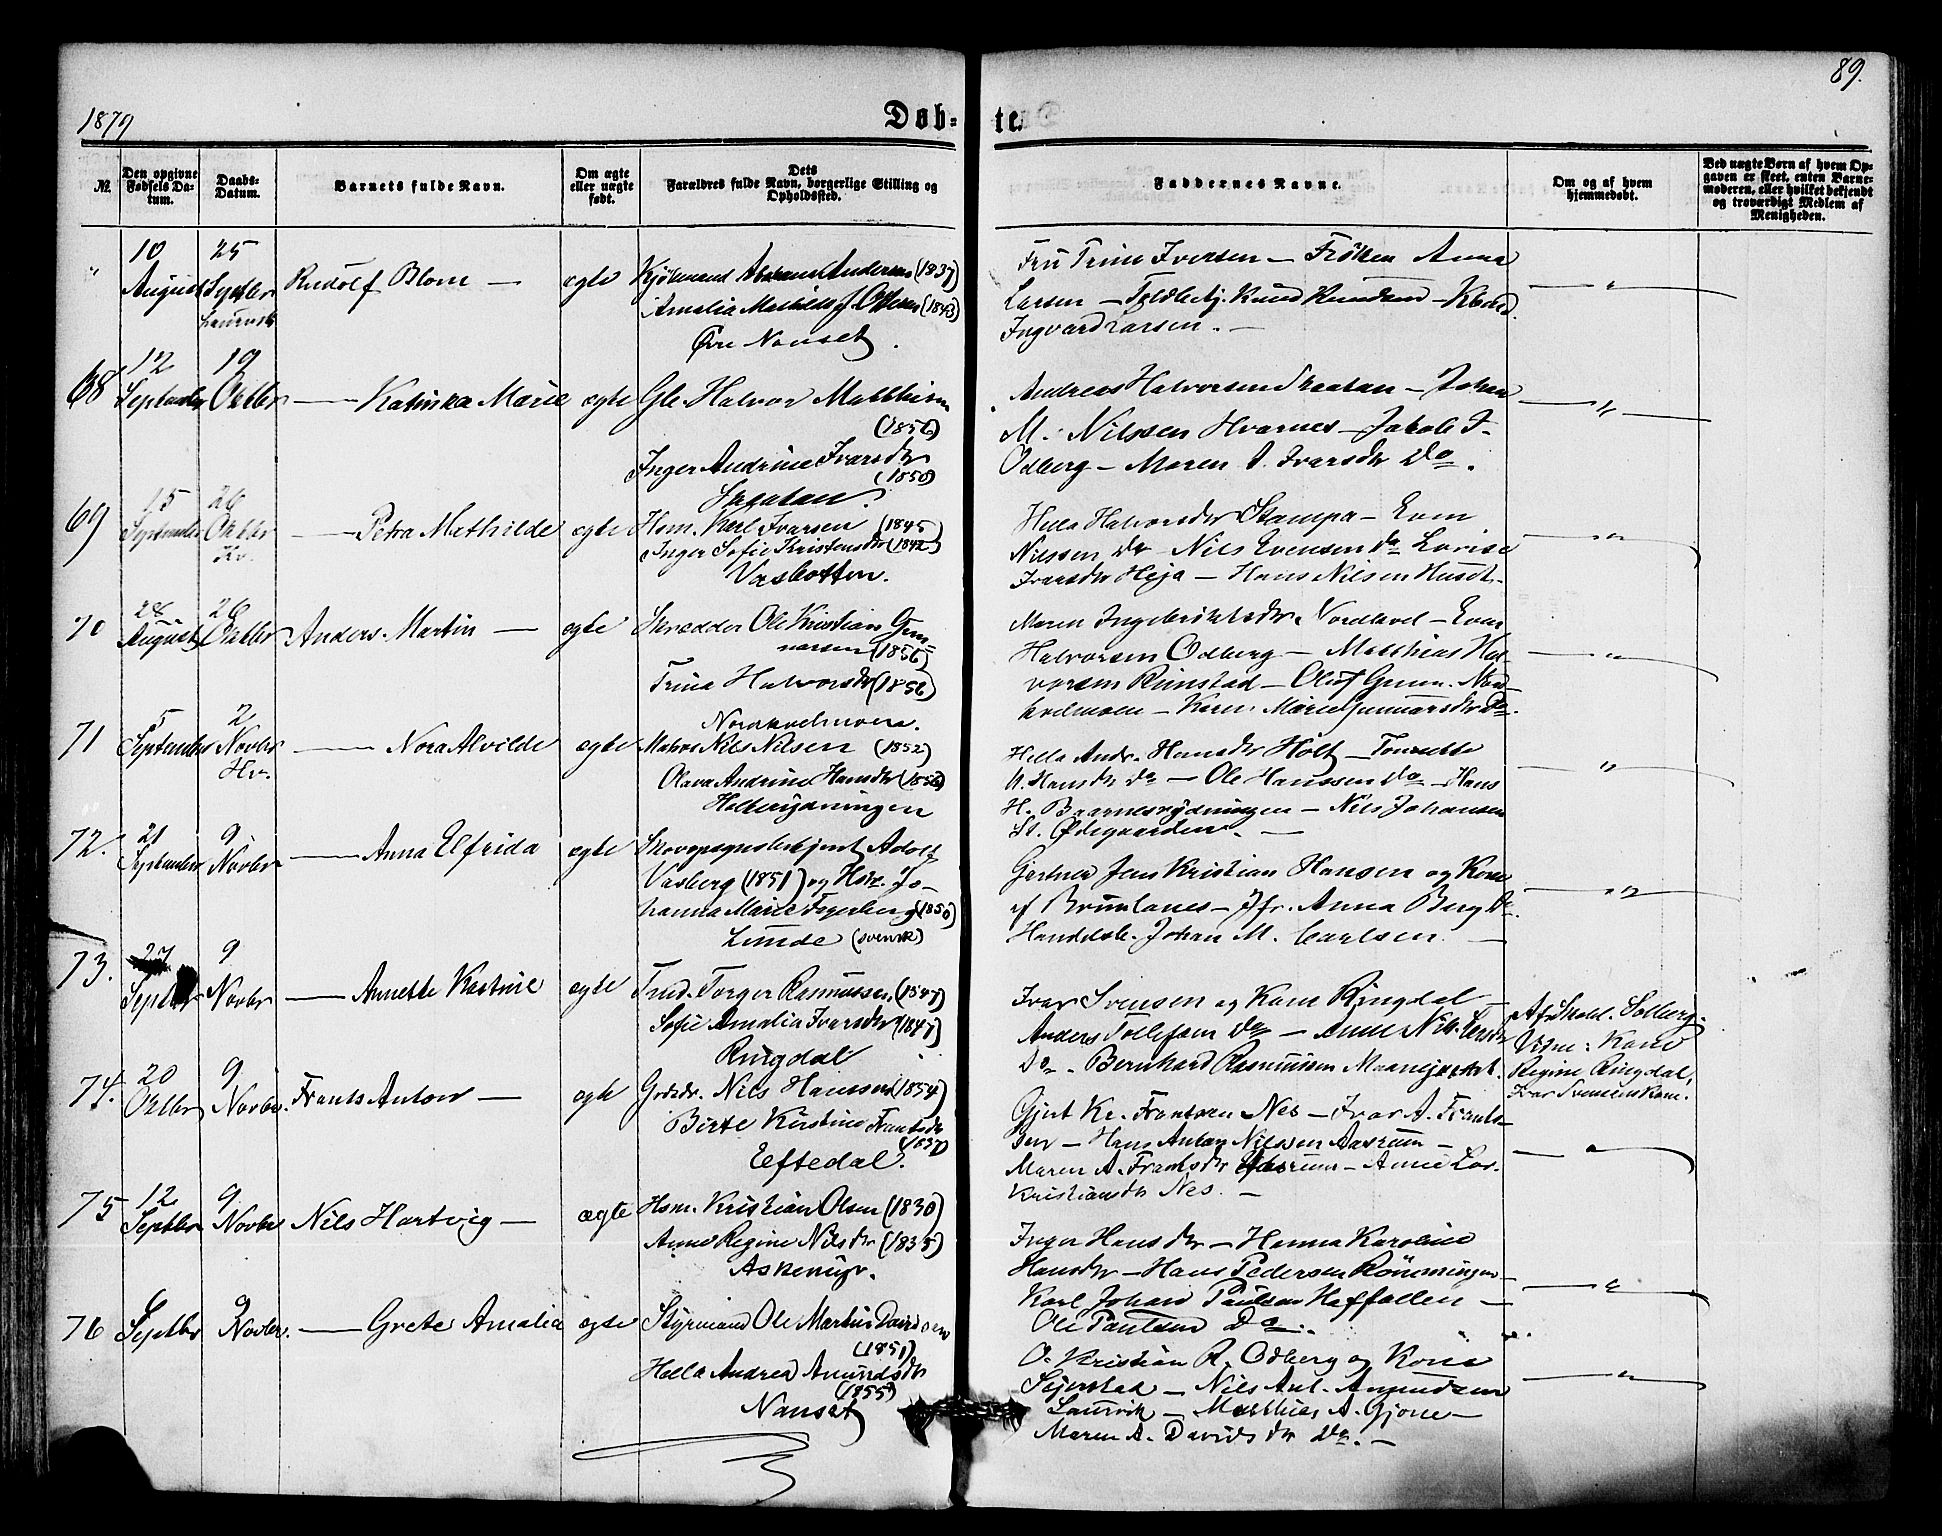 1879
Døb-
te.
89.
№
Den opgivne Fødsels Da-tum.
Daabs-Datum.
Barnets fulde Navn.
Om ægte eller uægte født.
Dets Forældres fulde Navn, borgerlige Stilling og Opholdssted.
Faddernes Navne.
Om og af hvem hjemmedøbt.
Ved uægte Børn af hvem Op-gaven er skeet, enten Barne-moderen, eller hvilket bekjendt og troværdigt Medlem af Menigheden.
" 10 August 25 Septbr
Rudolf Blom — ægte
Kjøbmand Andersen (1837)
Amalia Mathilde f. Ottesen (1843)
Øvre Nanset
Fru Trine Iversen — Frøken Anna
Larsen — Knud Knudsen —
Ingvard Larsen. —
— " —
68 12 September 19 Oktbr
— Katinka Marie ægte
Gle. Halvor Matthisen
(1856)
Inger Andrine Ivarsdtr
(1850)
Sagatan
Andreas Halvorsen Saatan — Johan
M. Nilssen Hvarnes — Jakob I.
Odberg — Maren A. Ivarsdtr Do.
— " —
69 15 September 26 Oktbr Kv.
— Petra Mathilde ægte
Hsm. Karl Ivarsen (1845
Inger Sofie Kristensdtr (1842)
Vasbotten.
Hella Halvorsdtr Stampa — Even
Nilssen Do — Nils Evensen Do Lovise
Ivarsdtr Heja — Hans Nilsen Huset.
— " —
70 28 August 26 Oktbr
Anders Martin — ægte
Skrædder Ole Kristian Gun-
narsen (1856)
Trina Halvorsdtr (1856)
Nordkvelmoen.
Maren Ingebriktsdtr Nordkvel — Even
Halvorsen Odberg — Matthias Hal-
vorsen Rimstad — Oluf Gunn. Nord-
kvelmoen — Karen Marie Gunnarsdtr Do.
— " —
71 5 September 2 Novbr Hv.
— Nora Alvilde ægte
Matros Nils Nilsen (1852)
Olava Andrine Hansdtr (1856)
Holterydningen
Hella Andr. Hansdtr Holt — Tonette
A. Hansdtr Do — Ole Hanssen Do — Hans
H. Baarnesrydningen — Nils Johansen
St. Ødegaarden. —
— " —
72. 21 September 9 Novbr
— Anna Elfrida ægte
Skovopsynsbetjent Adolf
Vasberg (1851) og Hstr. Jo-
hanna Marie Fogerberg (1850)
Lunde (svensk)
Gartner Jens Kristian Hansen og Kone
af Brunlanes — Jfr. Anna Berg Do.
Handelsb. Johan M. Carlsen. —
— " —
73. 27 Septbr 9 Novbr
— Annette Kastine ægte
Tmd. Torger Rasmussen (1847)
Sofie Amalia Ivarsdtr (1847)
Ringdal
Ivar Svensen og Kone Ringdal —
Anders Tollefsen Do — Anne Nils Larsdtr
Do — Bernhard Rasmussen
Af Skolel. Solberg.
Vidne: Kone
Regine Ringdal,
Ivar Svensens Kone.
74. 20 Oktbr 9 Novbr.
Frants Anton — ægte
Grdbr. Nils Hanssen (1854)
Birte Kirstine Frantsdtr
(1857)
Eftedal.
Gjert Kr. Frantsen Nes — Ivar A. Frants-
sen — Hans Anton Nilssen Aasrum —
Maren A. Frantsdtr Aasrum — Anne Lov.
Kristiansdtr Nes. —
— " —
75 12 Septbr 9 Novbr
Nils Hartvig — ægte
Hsm. Kristian Olsen (1830)
Anne Regine Nilsdtr (1835)
Askemyr.
Inger Hansdtr — Hanna Karoline
Hansdtr — Hans Pedersen Rønningen —
Karl Johan Paulsen Haffallen —
Ole Paulsen Do.
— " —
76 6 Septbr 9 Novbr.
— Grete Amalia ægte
Styrmand Ole Martin Davidsen
(1851)
Hella Andrea Amundsdtr
(1855)
Nanset
O. Kristian R. Odberg og Kone
Sejerstad — Nils Ant. Amundsen
Laurvik — Matthias A. Gjone —
Maren A. Davidsdtr Do. —
— " —